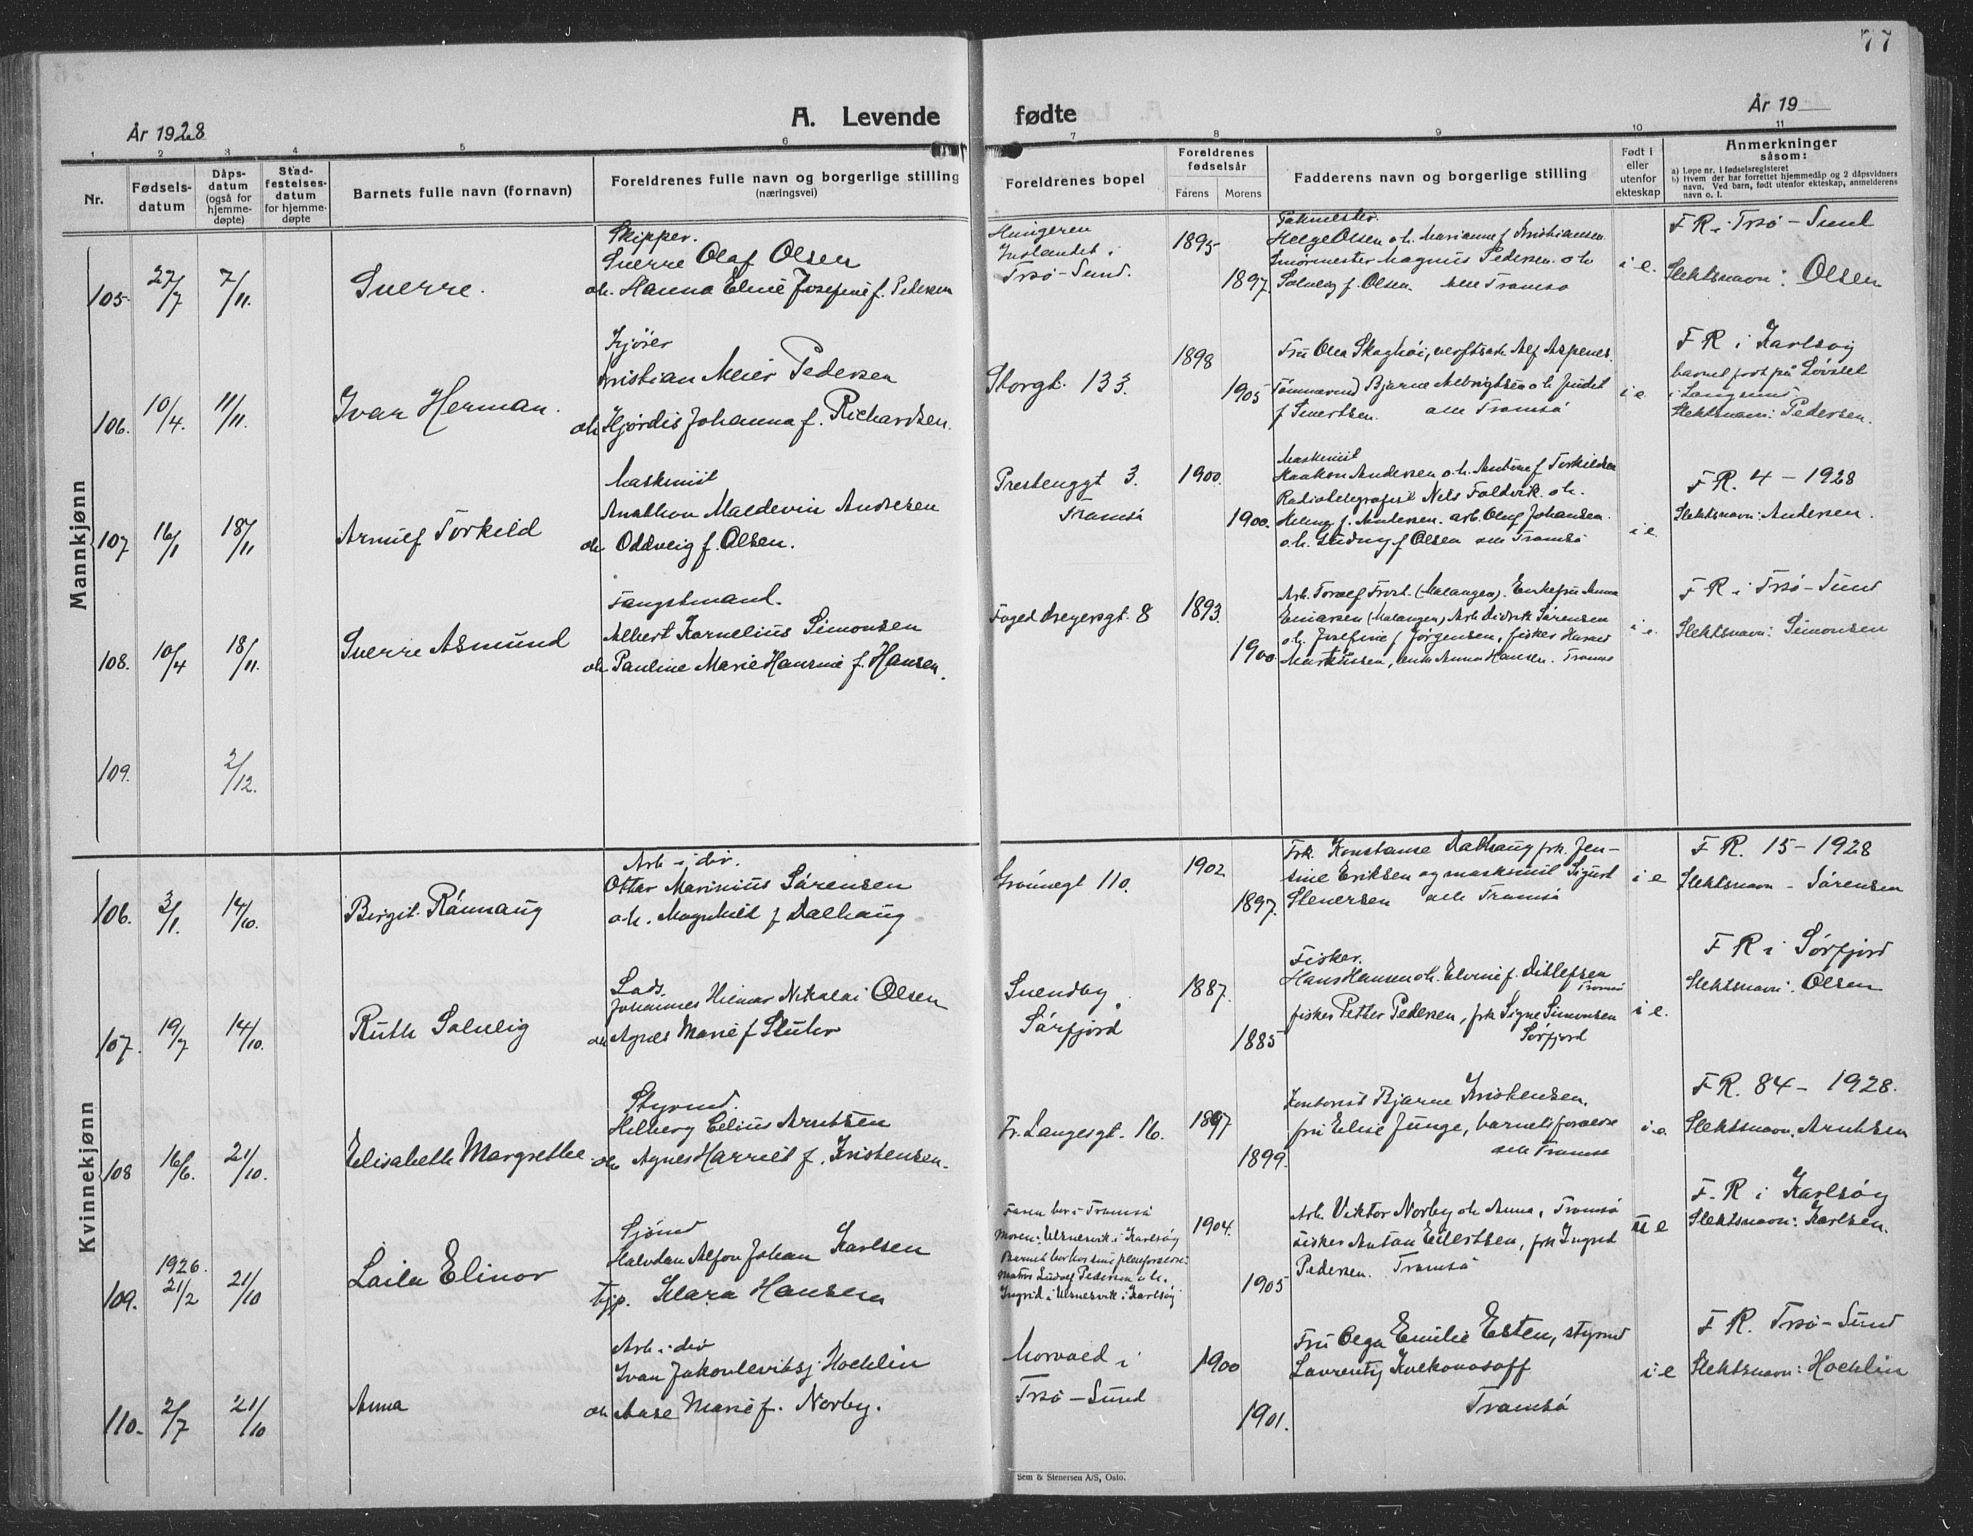 77
A. Levende fødte
År 1928
År 19
1 2 3 4 5 6 7 8 9 10 11
Nr.
Fødsels-
datum
Dåps-
datum
(også for
hjemme-
døpte)
Stad-
festelses-
datum
for hjemme-
døpte
Barnets fulle navn (fornavn)
Foreldrenes fulle navn og borgerlige stilling
(næringsvei)
Foreldrenes bopel
Foreldrenes
fødselsår
Farens Morens
Fadderens navn og borgerlige stilling
Født i
eller
utenfor
ekteskap
Anmerkninger
såsom:
a) Løpe nr. i fødselsregisteret
b) Hvem der har forrettet hjemmedåp og 2 dåpsvidners
navn. Ved barn, født utenfor ekteskap, anmelderens
navn o. l.
Mannkjønn
105. 27/7 7/11. Sverre.
Skipper.
Sverre Olaf Olsen
oh. Hanna Eline Josefine f. Pedersen
Trsø-Sund.
1895
1897.
Helge Olsen o.h. Marianne f. Kristiansen
Magnus Pedersen o.h.
Solveig f. Olsen. alle Tromsø
i e.
F R i Trsø-Sund
Slektsnavn: Olsen
106. 10/4. 11/11. Ivar Herman.
Kristian Meier Pedersen
oh Hjørdis Johanna f. Richardsen.
Storgt. 133.
1898
1905
Bjarne Albrigtsen o.h. Judit
f. Sivertsen. alle Tromsø
i e
F R i Karlsøy
Slektsnavn: Pedersen.
107 16/1 18/11 Arnulf Torkild
Maskinist
Anathon Maldevin Andresen
oh Oddveig f. Olsen.
Prestenggt 3.
Tromsø
1900.
1900.
Maskinist
Haakon Andersen o.h. Antine f Torkildsen
Radiotelegrafist Nels Foldvik o.h.
f. Andersen. arb. Oluf Johansen
o.h. f Olsen alle Tromsø
i e.
F R. 4 - 1928
Slektsnavn: Andersen.
108. 10/4 18/11. Sverre Asmund
Fangstmand.
Albert Kornelius Simonsen
oh Pauline Marie Hansine f. Hansen.
Foged Dreyersgt. 8
1893.
1900.
(Malangen). Enkefru Anna
Einarsen (Malangen) Arb Didrik Sørensen
o.h. Josefine f Jørgensen, fisker
Markussen, enke Anna Hansen. Tromsø
i e.
F R i Trsø-Sund
Slektsnavn: Simonsen
109. 2/12.
Kvinnekjønn
106. 3/1. 14/10. Birgit Rønnaug
Arb-i-div.
Ottar Marinius Sørensen
o.h. Magnhild f Dalhaug
Grønnegt 110.
1902.
1897.
Frk. Konstanse Dalhaug frk. Jen-
sine Eriksen og maskinist Sigurd
Stenersen alle Tromsø
i e
F R. 15-1928
Slektsnavn - Sørensen
107. 19/7 14/10. Ruth Solveig
Johannes Hilmar Nikolai Olsen
oh Agnes Marie f Stuhr
Svendby
Sørfjord
1887.
1885
Fisker.
Hans Hansen o.h. Elvine f. Ditlefsen
Tromsø
fisker Petter Pedersen, frk Signe Simonsen
Sørfjord
i e.
F R i Sørfjord
Slektsnavn: Olsen
108 16/6. 21/10. Elisabeth Margrethe
Styrmd.
Hilberg Edius Arntsen
oh Agnes Harriet f. Kristensen.
Fr. Langesgt. 16.
1897
1899.
Kontorist Bjarne Kristensen,
fru Elise Junge, barnets foreldre
alle Tromsø
i e.
F R. 84 - 1928.
Slektsnavn. Arntsen
109. 1926. 21/2 21/10 Laila Elinor
Sjømd
Halvdan Alfon Johan Karlsen
tjp. Klara Hansen
Faren bor i Tromsø
Moren: i Karlsøy
Barnet bor hos sine pleieforeldre:
Ludolf Pedersen o.h.
Ingrid i Karlsøy
1904.
1905
Arb. Viktor Norby oh Anna, Tromsø
fisker Anton Eilertsen, frk Ingrid
Pedersen. Tromsø
u e
F. R i Karlsøy
Slektsnavn: Karlsen.
110. 2/7 21/10 Anna
Arb. i div
Ivan Hoehlin
oh Aase Marie f. Norby.
Movold i
Trsø-Sund
1900
1901.
Fru Olga Emilie Esten, styrmd
Lavrentij
Tromsø
i e
F R. Trsø-Sund
Slektsnavn: Hoehlin
Sem & Stenersen A/S, Oslo.